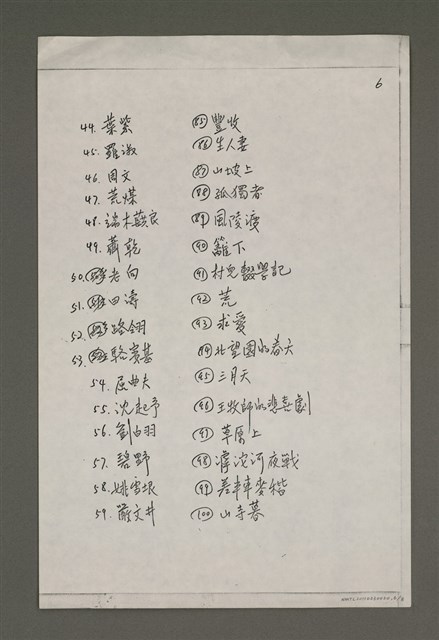 6
44. 葉紫 (85) 豐收
45. 羅淑 (86) 生人妻
46. 周文 (87) 山坡上
47. 荒煤 (88) 孤獨者
48. 端木蕻良 (89) 風陵渡
49. 蕭乾 (90) 籬下
50. 老向 (91) 村兒輟學記
51. 田濤 (92) 荒
52. 路翎 (93) 求愛
53. 駱賓基 (94) 北望園的春天
54. 屈曲夫 (95) 三月天
55. 沈起予 (96) 王牧師的悲喜劇
56. 劉白羽 (97) 草原上
57. 碧野 (98) 滹沱河夜戰
58. 姚雪垠 (99) 差半車麥稭
59. 嚴文井 (100) 山寺暮